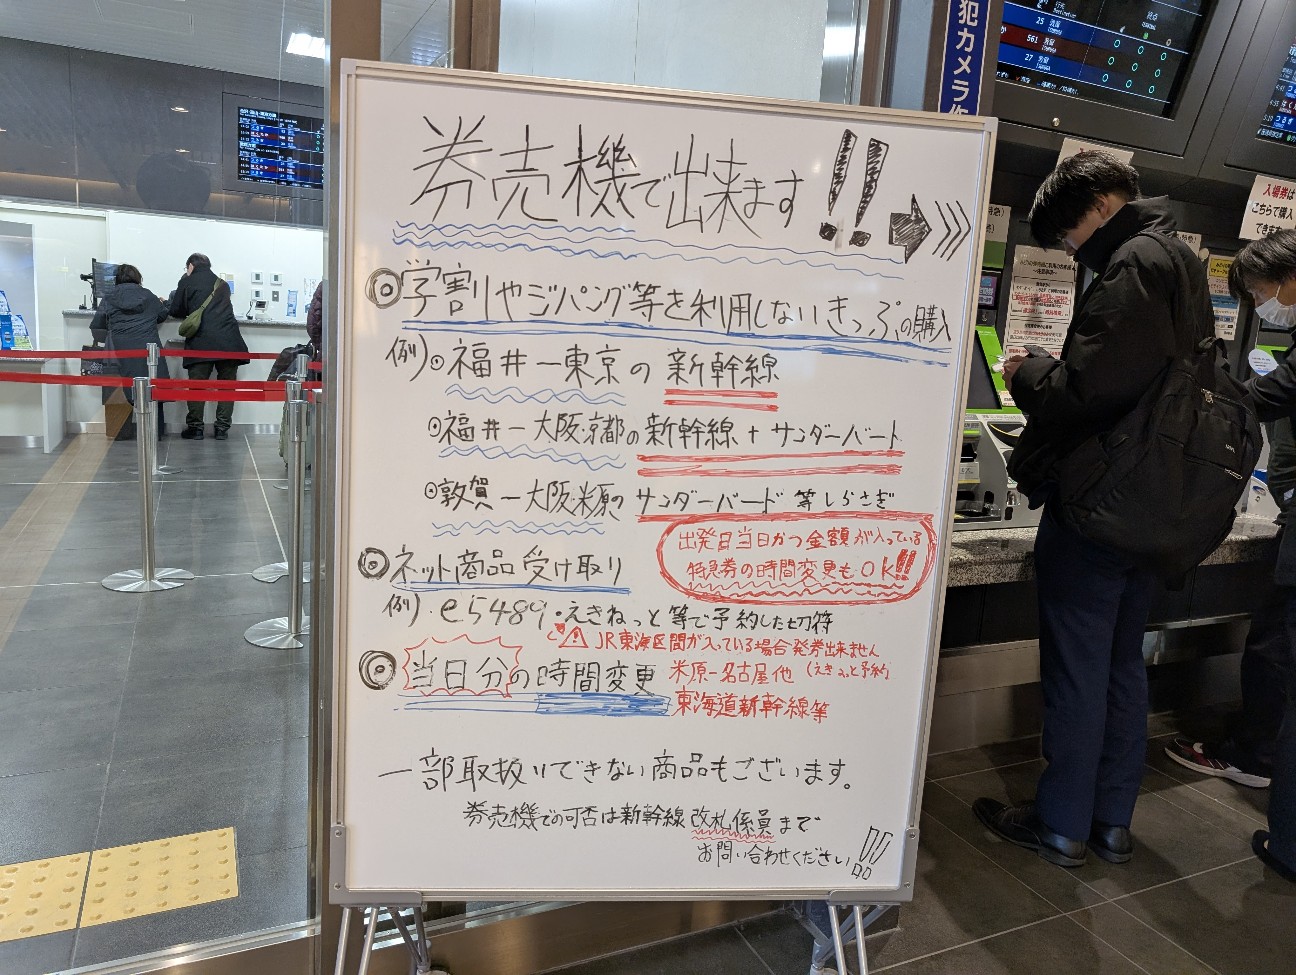 券売機で出来ます!!
◎学割やジパング等を利用しないきっぷの購入
例)⊙福井ー東京の新幹線
⊙福井ー大阪・京都の新幹線+サンダーバード
⊙敦賀ー大阪・米原のサンダーバード等しらさぎ
出発日当日かつ金額が入っている
特急券の時間変更もOK!!
◎ネット商品受け取り
例)・e5489・えきねっと等で予約した切符
JR東海区間が入っている場合発券出来ません
米原ー名古屋他(えきねっと予約)
東海道新幹線等
◎当日分の時間変更
一部取扱いできない商品もございます。
券売機での可否は新幹線改札係員まで
お問い合わせください!!
犯カメラ
25
561
27
入場券は
こちらで購入
できます